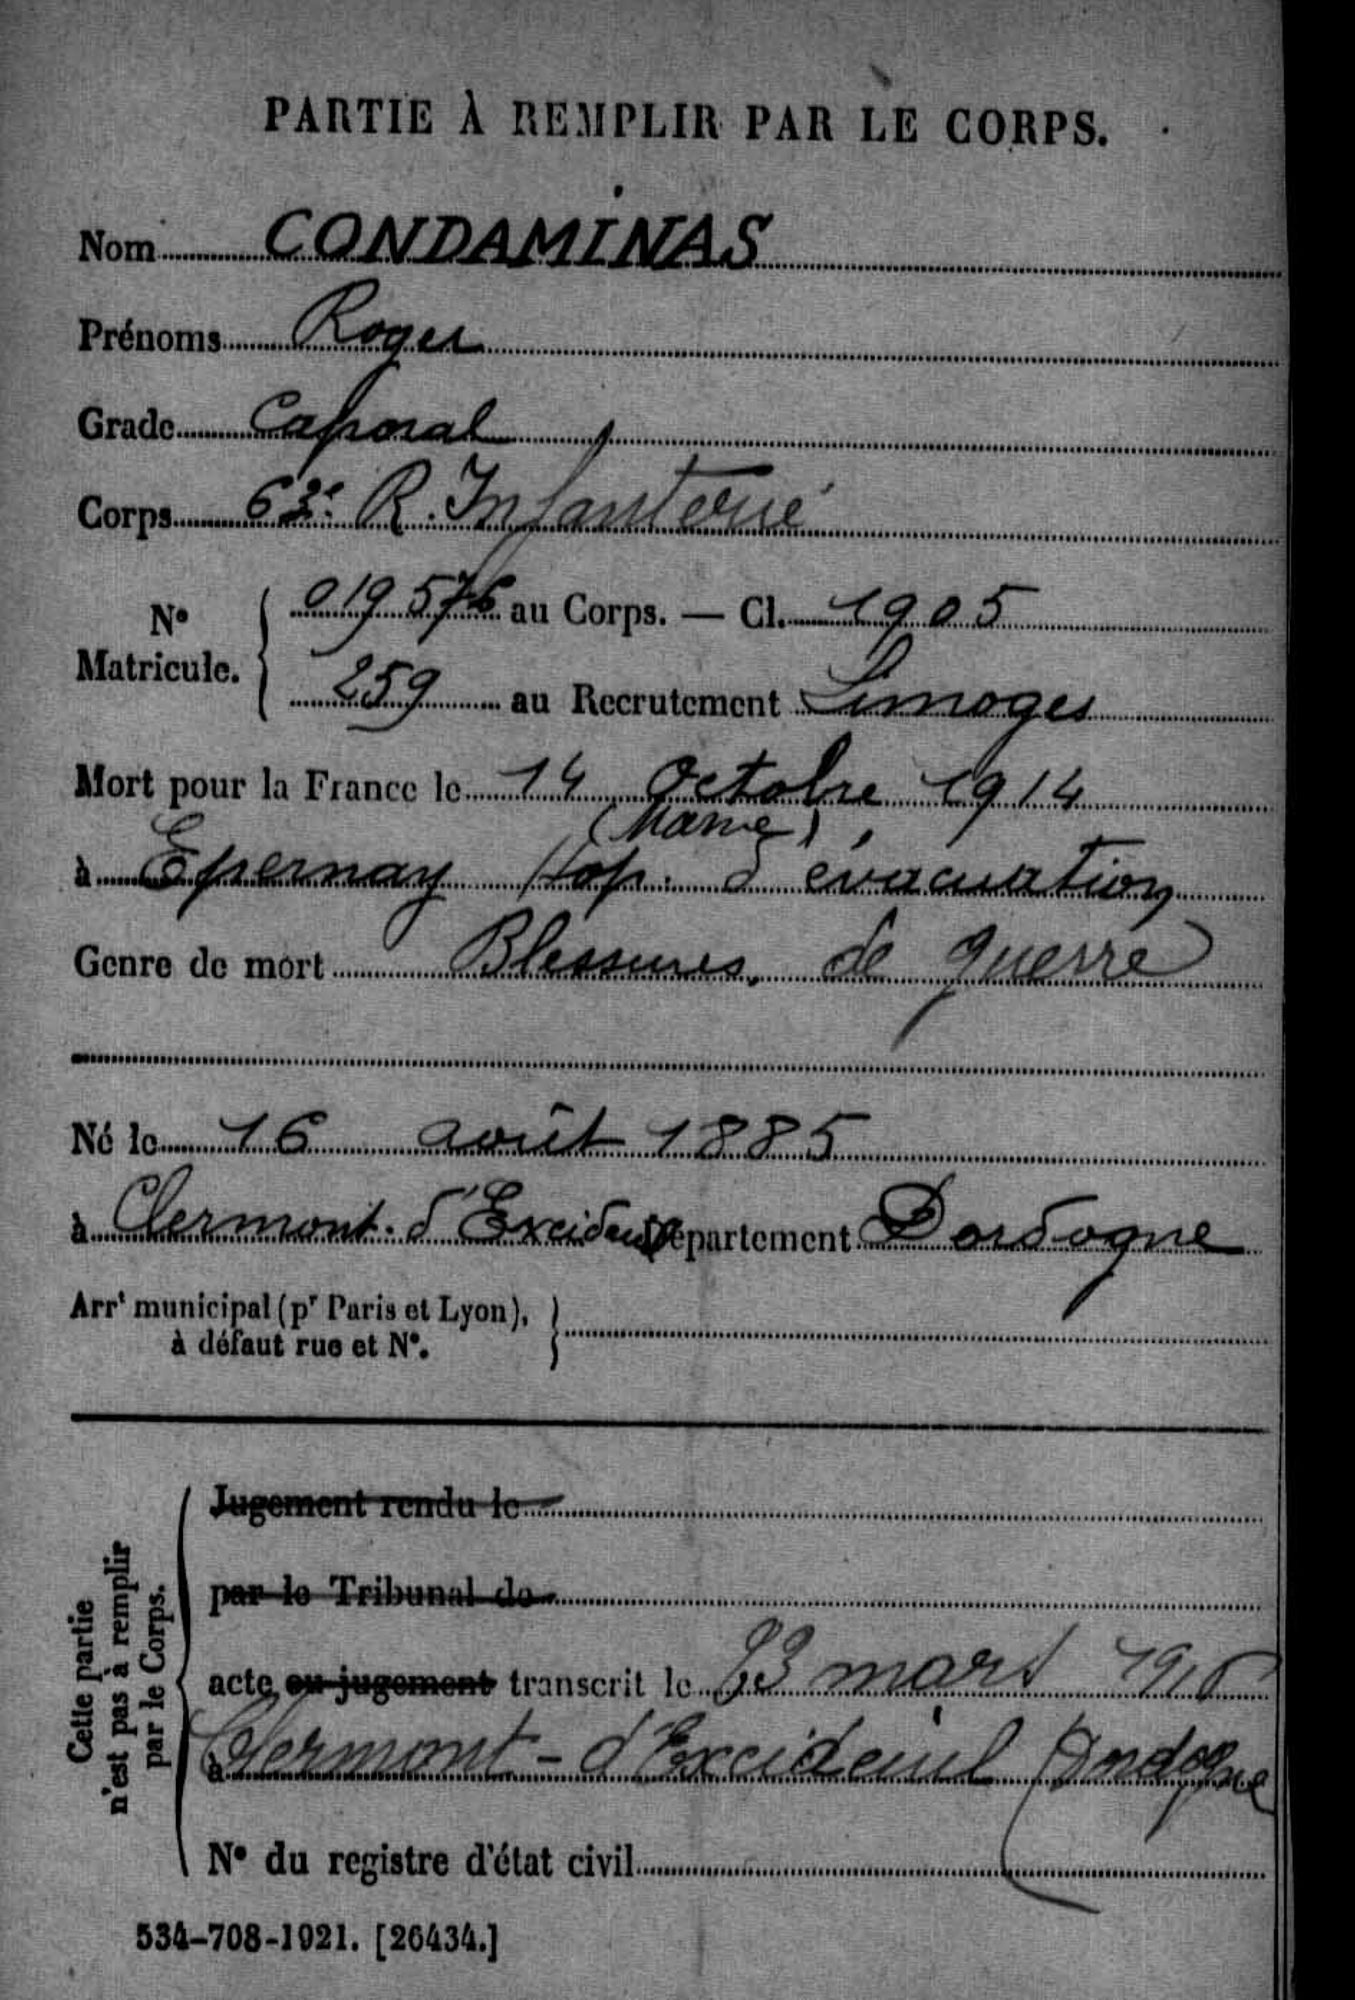 PARTIE À REMPLIR PAR LE CORPS.
Nom CONDAMINAS
Prénoms Roger
Grade Caporal
Corps 63e R. Infanterie
N° Matricule. { 019576 au Corps. — Cl. 1905
259 au Recrutement Limoges
Mort pour la France le 14 Octobre 1914
(Marne)
à Epernay Hop. d'évacuation
Genre de mort Blessures de guerre
Né le 16 août 1885
à Clermont-d'Excideuil Département Dordogne
Arrt municipal (pr Paris et Lyon), }
à défaut rue et N°.
Cette partie
n'est pas à remplir
par le Corps.
Jugement rendu le
par le Tribunal de
acte ou jugement transcrit le 23 mars
à Clermont-d'Excideuil Dordogne
N° du registre d'état civil
534-708-1921. [26434.]